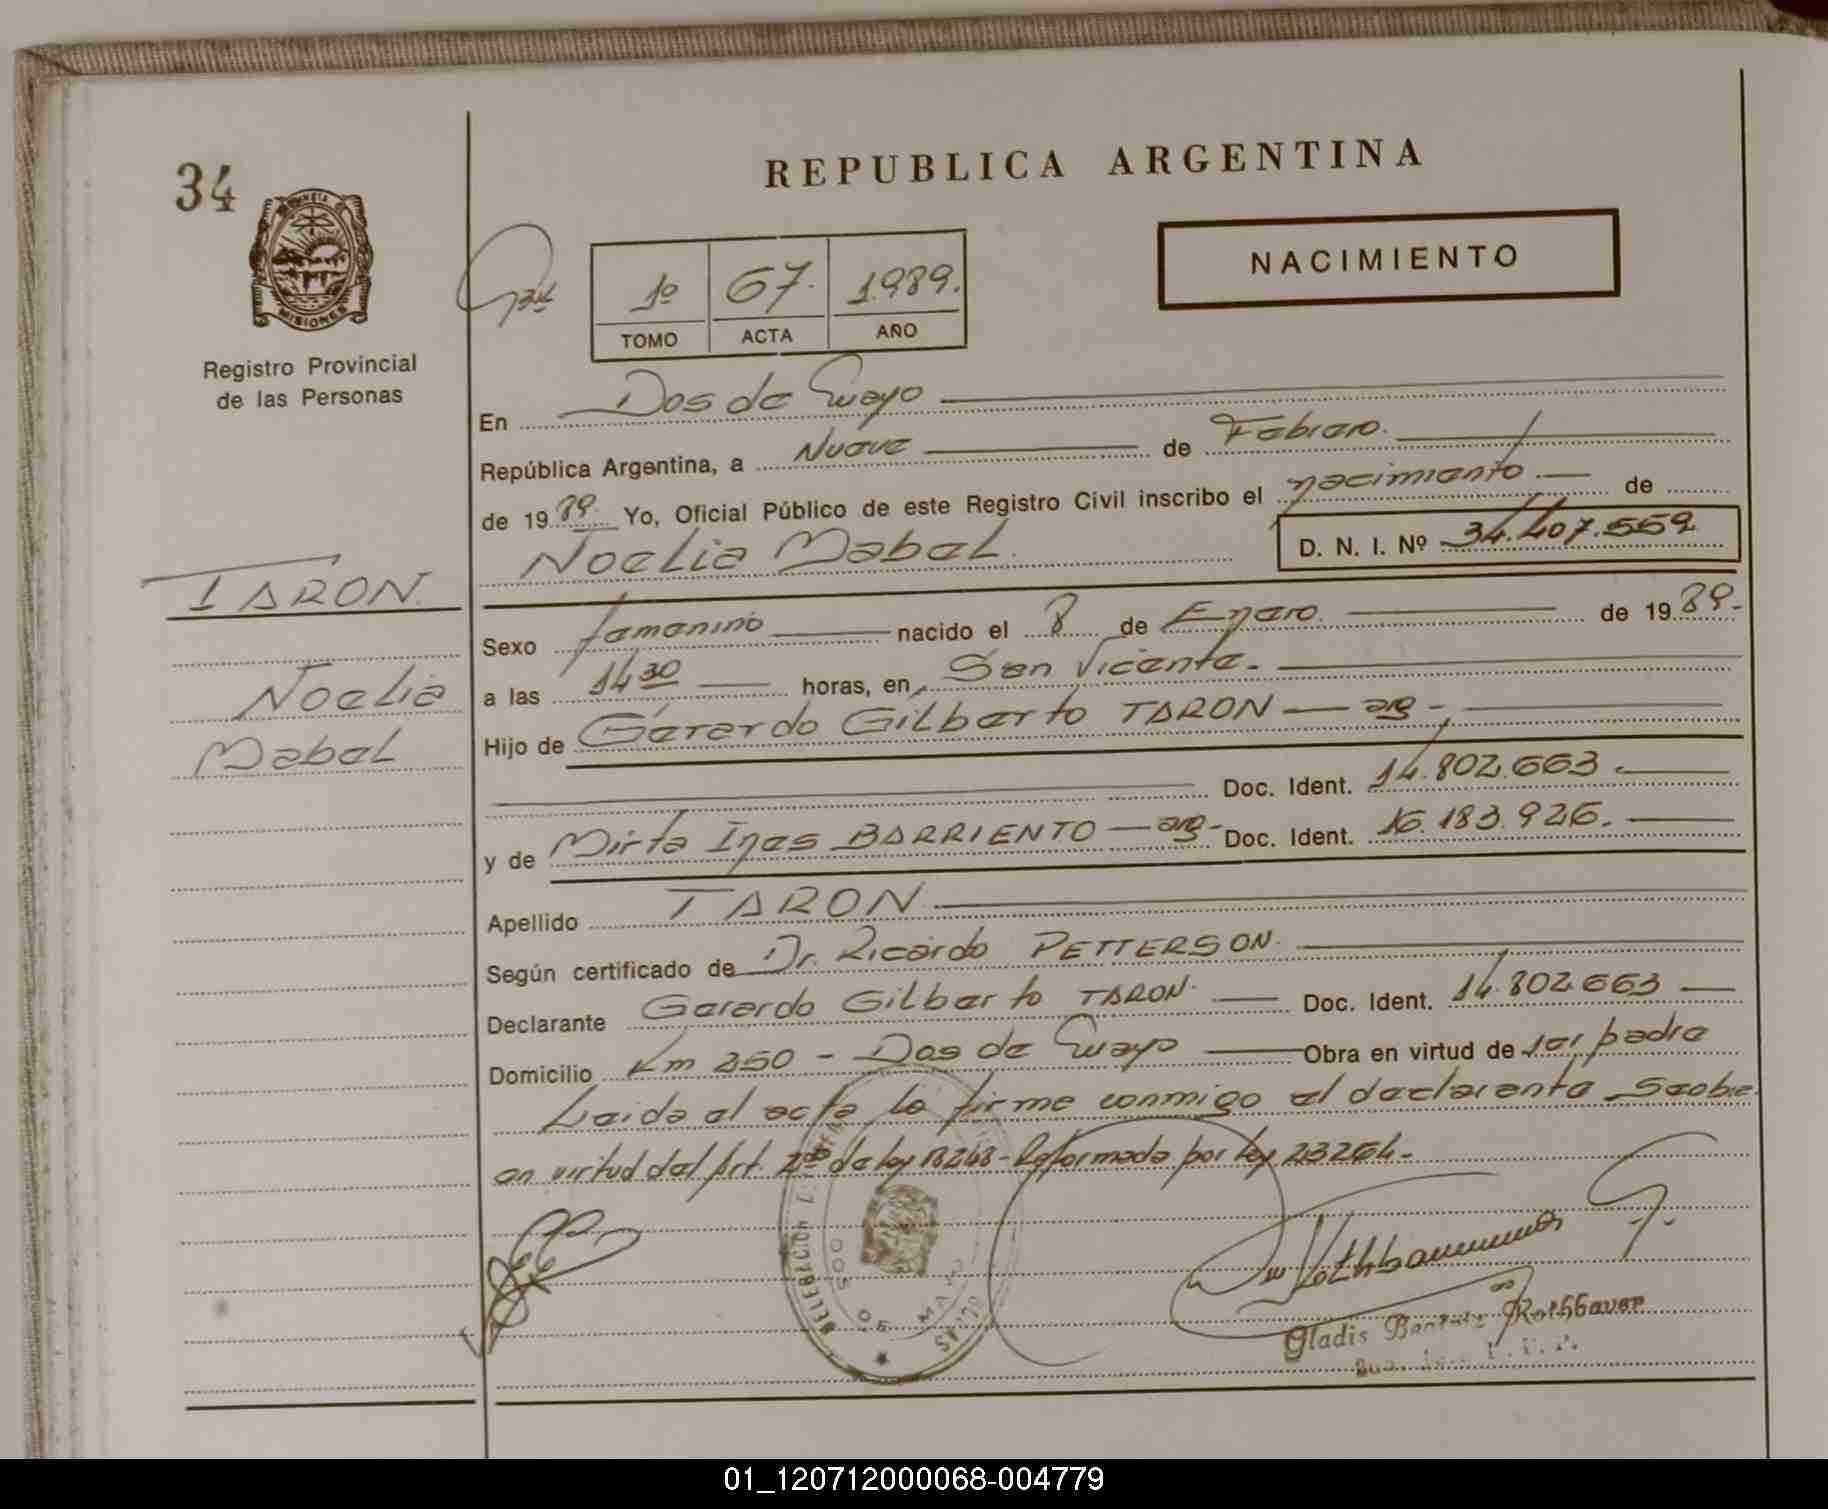 34
REPUBLICA ARGENTINA
NACIMIENTO
MISIONES
1º 67. 1989.
TOMO ACTA AÑO
Registro Provincial
de las Personas
En Dos de Mayo
República Argentina, a Nueve de Febrero.
de 19 89. Yo, Oficial Público de este Registro Civil inscribo el nacimiento de
Noelia Mabel D. N. I. Nº 34.407.559
TARON
Noelia
Mabel
Sexo femenino nacido el 8 de Enero. de 19 89.-
a las 14 30 horas, en San Vicente.-
Hijo de Gerardo Gilberto TARON — arg -,
Doc. Ident. 14.802.663.-
y de Mirta Ines BARRIENTO — arg- Doc. Ident. 16.183.926.-
Apellido TARON
Según certificado de Dr. Ricardo PETTERSON.
Declarante Gerardo Gilberto TARON. Doc. Ident. 14.802.663
Domicilio Km 250 - Dos de Mayo Obra en virtud de ser padre
Leida el acta la firma conmigo el declarante
en virtud del Art. de ley 18248 - Reformada por ley 23264.-
DOS DE MAYO
Gladis Beatriz Rothbauer
01_120712000068-004779